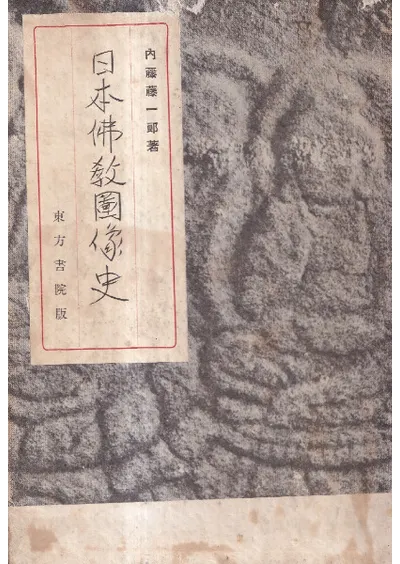 内藤藤一郎著
日本佛教圖像史
東方書院版